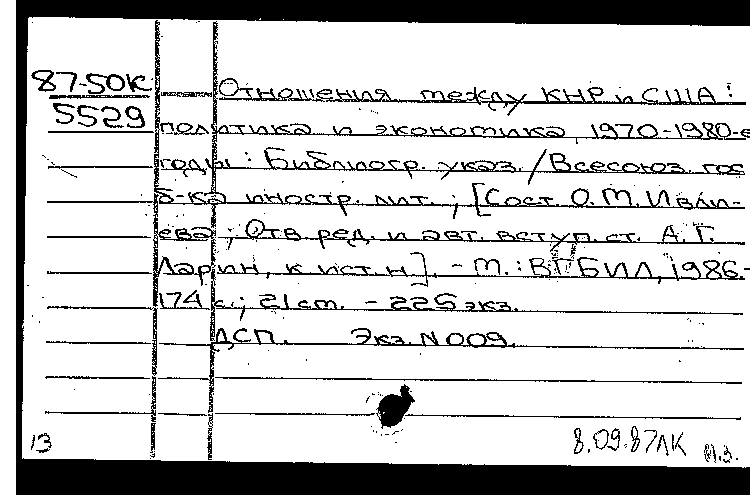 87-50К
5529
Отношения между КНР и США:
политика и экономика, 1970-1980-е
годы: Библиогр. указ. / Всесоюз. гос
б-ка иностр. лит.; [Сост. О.М. Ивли-
ева; Отв. ред. и авт. вступ. ст. А.Г.
Ларин, к ист. н.]. - М.: ВГБИЛ, 1986.-
174 с.; 21 см. - 225 экз.
ДСП. Экз. N 009.
13
8.09.87 ЛК